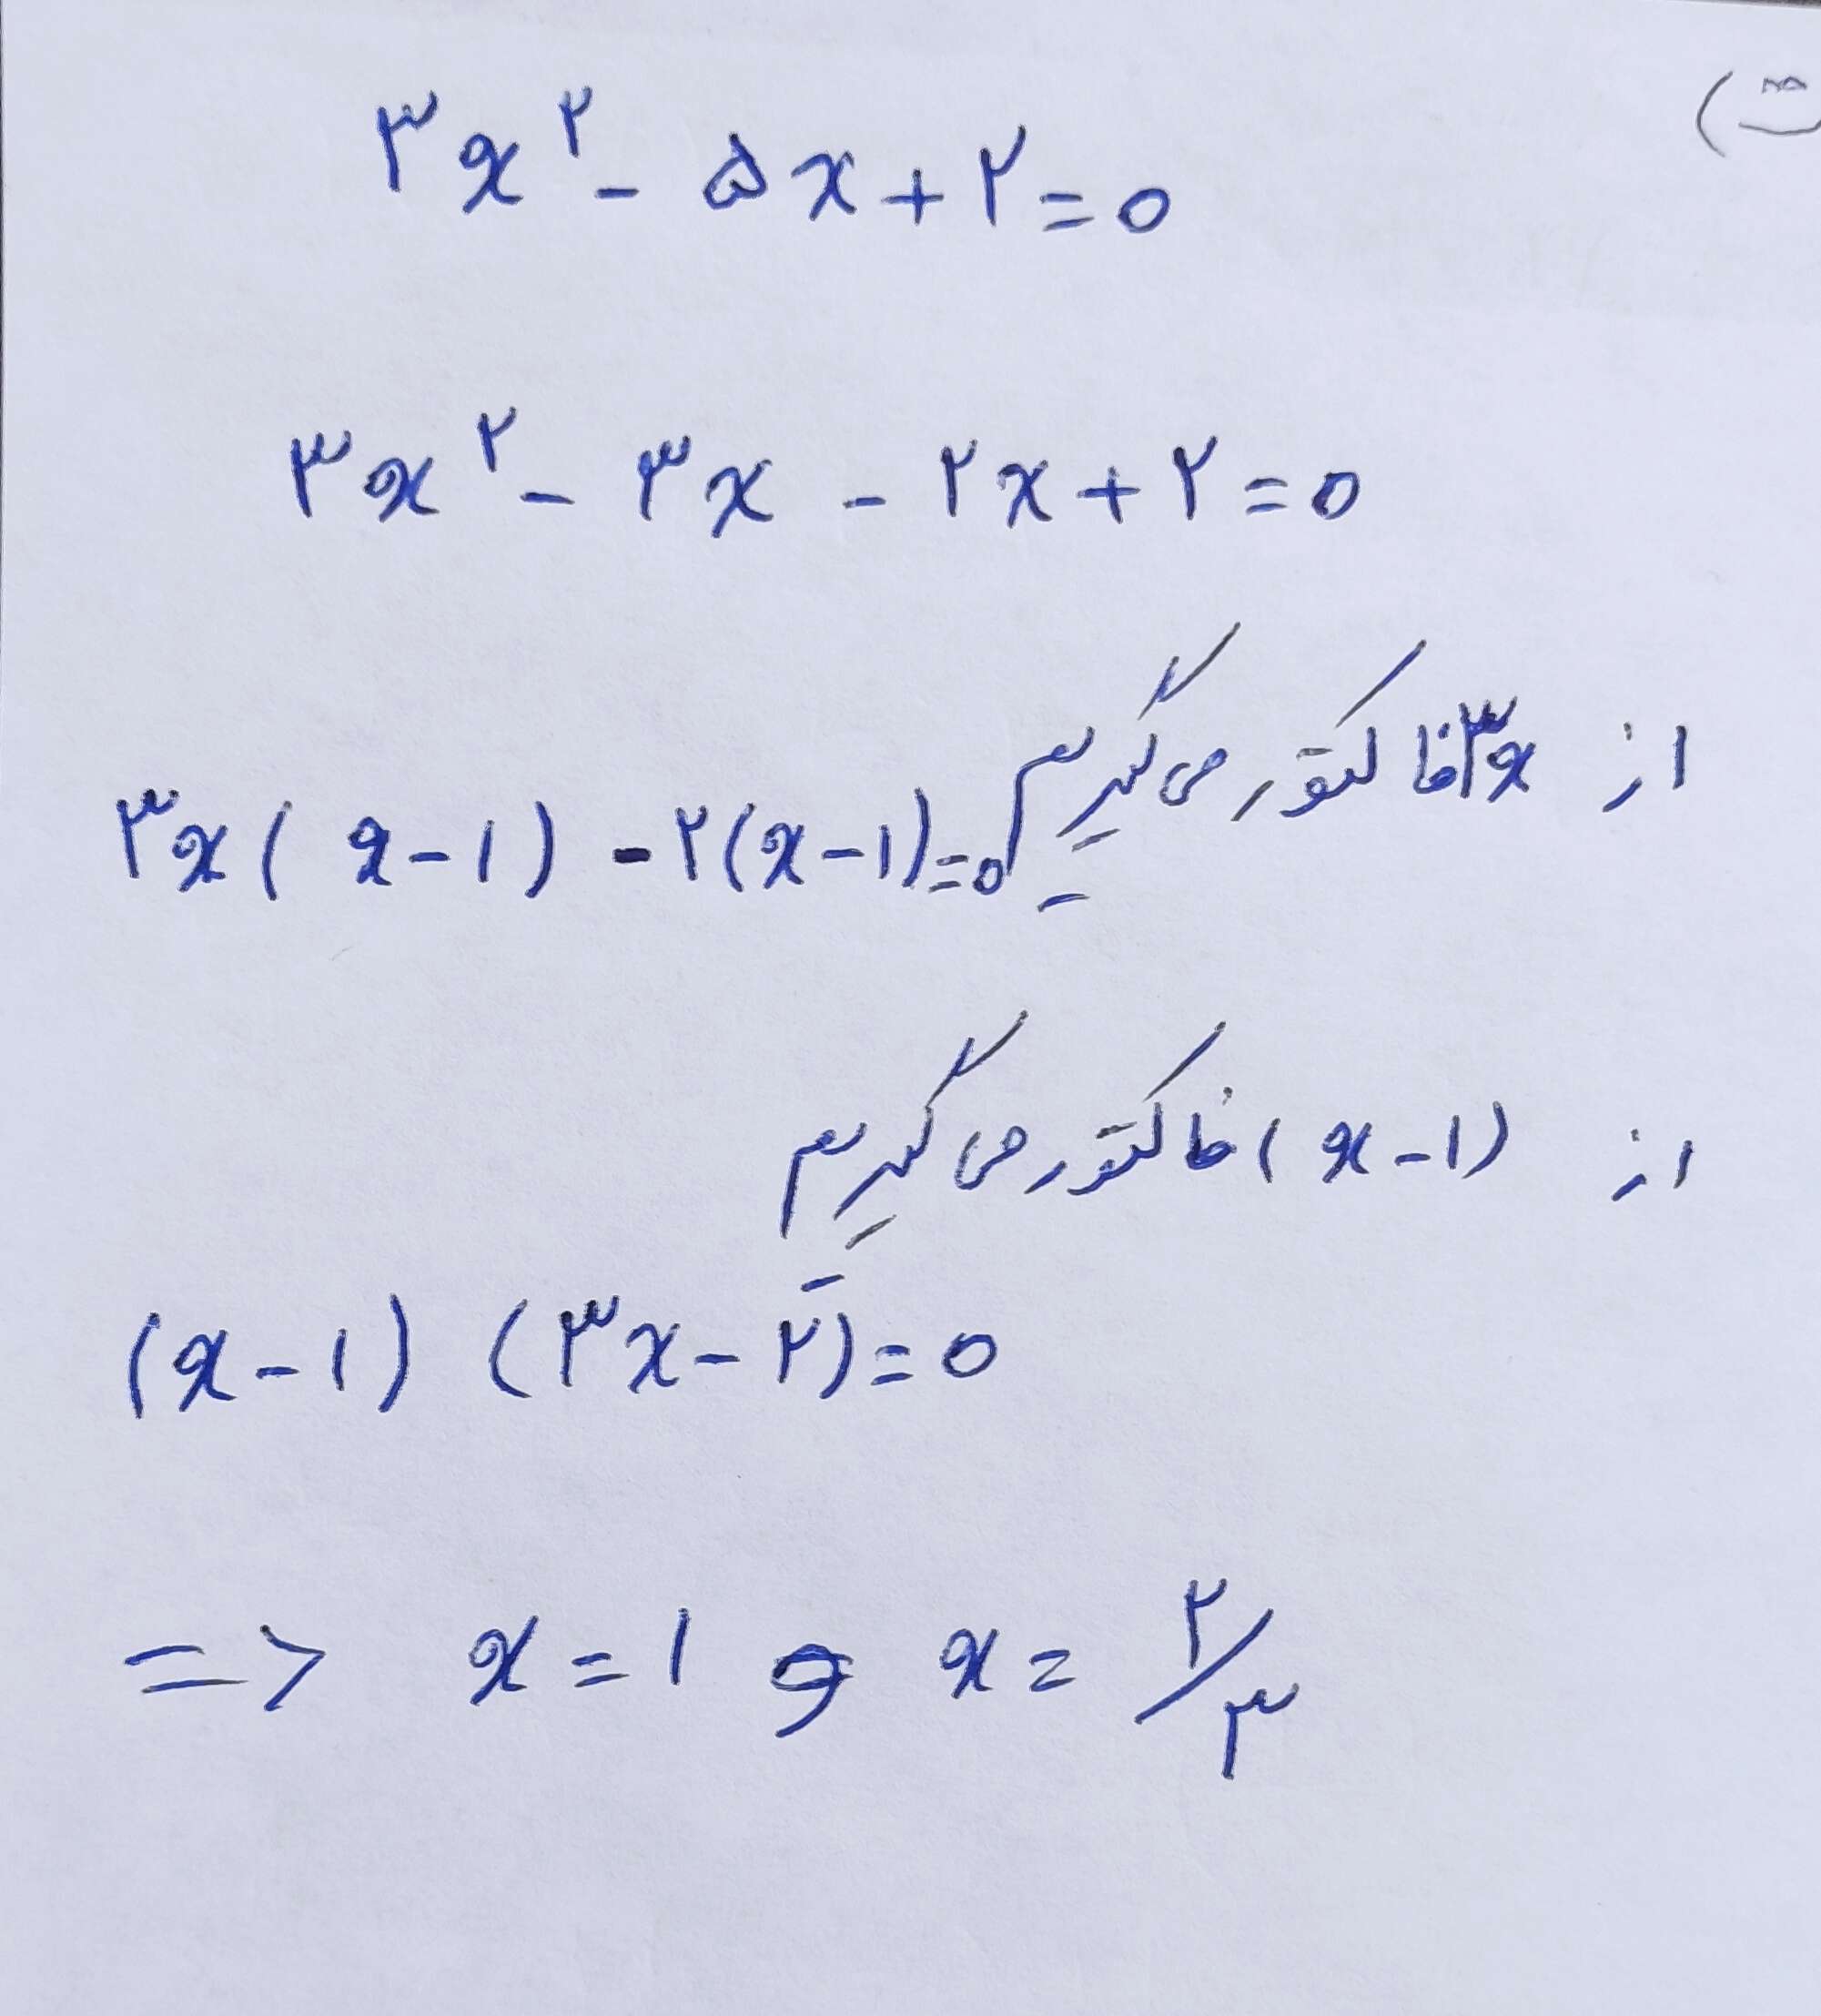 ۳x^۲ - ۵x + ۲ = 0
۳x^۲ - ۳x - ۲x + ۲ = 0
از ۳x فاکتور می گیریم
۳x(x-۱) - ۲(x-۱) = 0
از (x-۱) فاکتور می گیریم
(x-۱) (۳x-۲) = 0
=> x = ۱ و x = ۲/۳